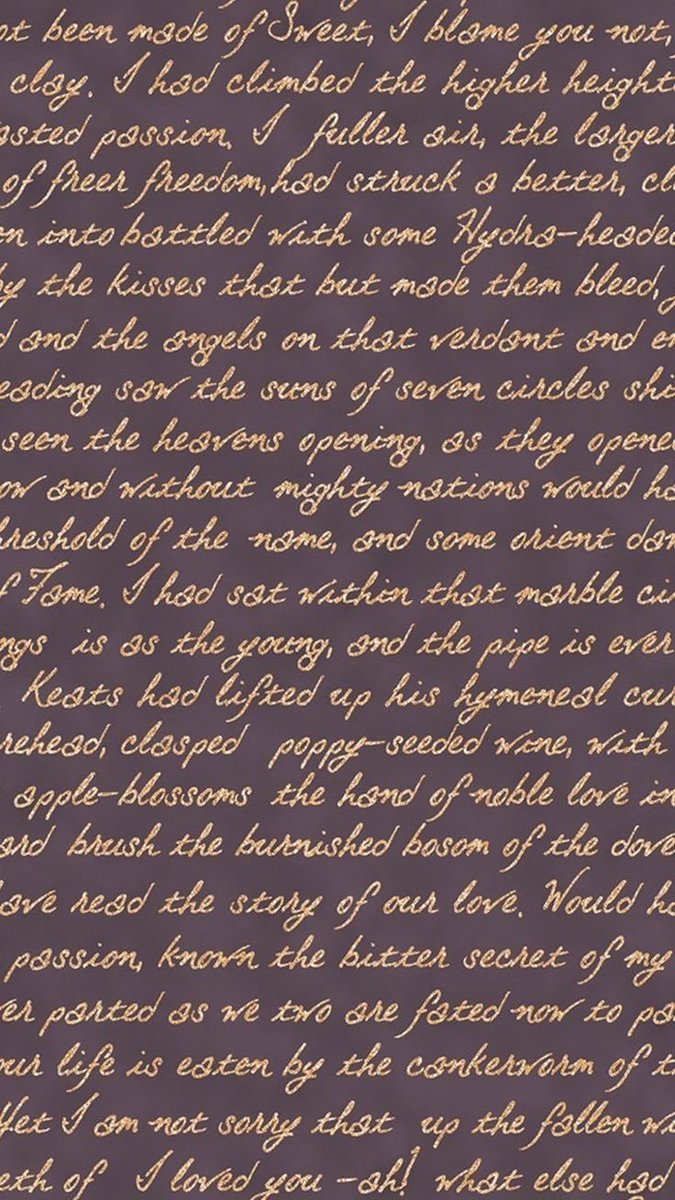 ot been made of Sweet, I blame you not,
clay. I had climbed the higher height
asted passion, I fuller air, the larger
of freer freedom, had struck a better, cl
en into battled with some Hydra-headed
by the kisses that but made them bleed,
d and the angels on that verdant and en
eading saw the suns of seven circles shi
seen the heavens opening, as they opene
ow and without mighty nations would ha
hreshold of the name, and some orient daw
f Fame. I had sat within that marble cir
ngs is as the young, and the pipe is ever
. Keats had lifted up his hymeneal cur
rehead, clasped poppy-seeded wine, with
apple-blossoms the hand of noble love in
ard brush the burnished bosom of the dove
ave read the story of our love. Would ha
passion, known the bitter secret of my
er parted as we two are fated now to pa
our life is eaten by the cankerworm of t
Yet I am not sorry that up the fallen wi
eth of I loved you -ah! what else had